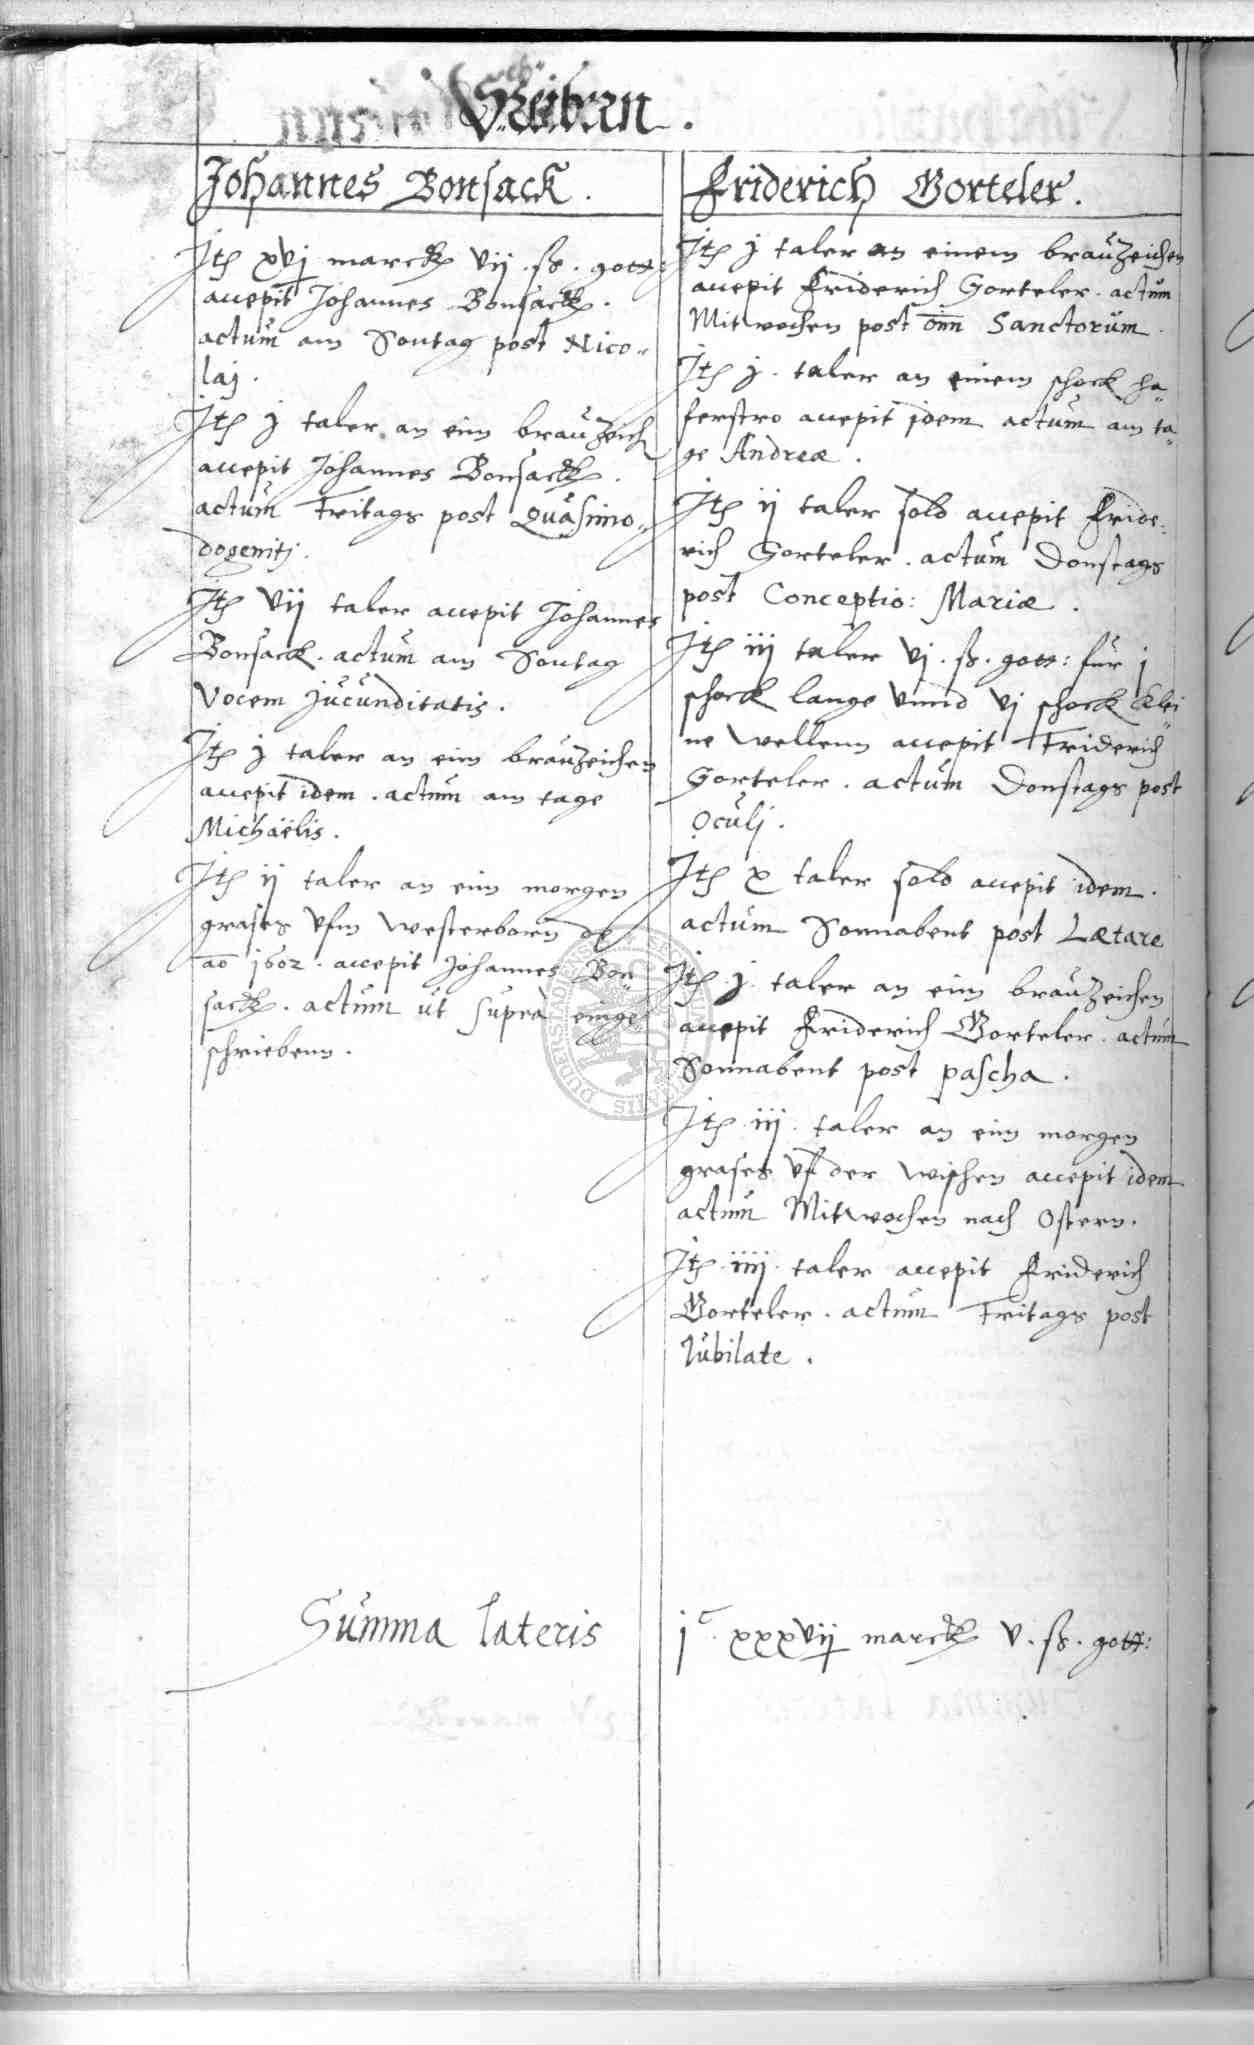 Schreibern.
Johannes Bonsack.
Jtem xvj marck vij. ß. gott:
accepit Johannes Bonsack.
actum am Sontag post Nico„
laj.
Jtem j taler an eim brauzeich
accepit Johannes Bonsack.
actum Fritags post Quasimo„
dogenitj.
Jtem vij taler accepit Johannes
Bonsack. actum am Sontag
Vocem Jucunditatis.
Jtem j taler an eim brauzeichen
accepit idem. actum am tage
Michaëlis.
Jtem ij taler an eim morgen
grases vfm Westerborn de
ao 1602. accepit Johannes Bon„
sack. actum ut suprà einge
schriebenn.
Friderich Gorteler.
Jtem j taler an einem brauzeichen
accepit Friderich Gorteler. actum
Mitwochen post omn Sanctorum.
Jtem j. taler an einem schock ha„
ferstro accepit idem actum am ta„
ge Andreæ.
Jtem ij taler sold accepit Fride„
rich Gorteler. actum Donstags
post Conceptio: Mariæ.
Jtem iij taler vj. ß. gott: für j
schock lange vnnd vj schock klei„
ne wellenn accepit Friderich
Gorteler. actum Donstags post
Oculj.
Jtem x taler sold accepit idem.
actum Sonnabent post Lætare
Jtem j. taler an eim brauzeichen
accepit Friderich Gorteler. actum
Sonnabent post pascha.
Jtem iij. taler an eim morgen
grases vf der wischen accepit idem
actum Mitwochen nach Ostern.
Jtem iiij. taler accepit Friderich
Gorteler. actum Fritags post
Jubilate.
Summa lateris jc. xxxvij marck v. ß. gott: